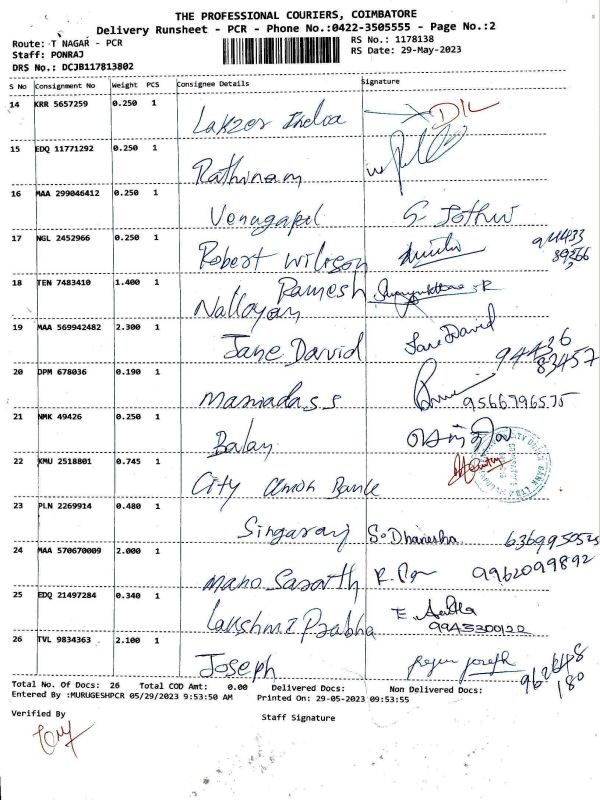 THE PROFESSIONAL COURIERS, COIMBATORE
Delivery Runsheet - PCR - Phone No.:0422-3505555 - Page No.:2
Route: T NAGAR - PCR
RS No.: 1178138
Staff: PONRAJ
RS Date: 29-May-2023
DRS No.: DCJB117813802
S No Consignment No Weight PCS Consignee Details Signature
14 KRR 5657259 0.250 1
Lakzer India
15 EDQ 11771292 0.250 1
Rathinam
16 MAA 299046412 0.250 1
Venugapal S. Jothi
17 NGL 2452966 0.250 1
Robert Wilison
18 TEN 7483410 1.400 1
Ramesh
Nallayan
19 MAA 569942482 2.300 1
Jane Darvid Jane David
94436
83457
20 DPM 678036 0.190 1
9566796575
21 NMK 49426 0.250 1
Balan
22 KMU 2518801 0.745 1
City Union Bank
23 PLN 2269914 0.480 1
Singaraj S. Dhanesha
24 MAA 570670009 2.000 1
Mano Sarath 9962099892
25 EDQ 21497284 0.340 1
Lakshmi Prabha
9945300120
26 TVL 9834363 2.100 1
Joseph
Total No. Of Docs: 26 Total COD Amt: 0.00 Delivered Docs: Non Delivered Docs:
Entered By :MURUGESHPCR 05/29/2023 9:53:50 AM Printed On: 29-05-2023 09:53:55
Verified By
Staff Signature